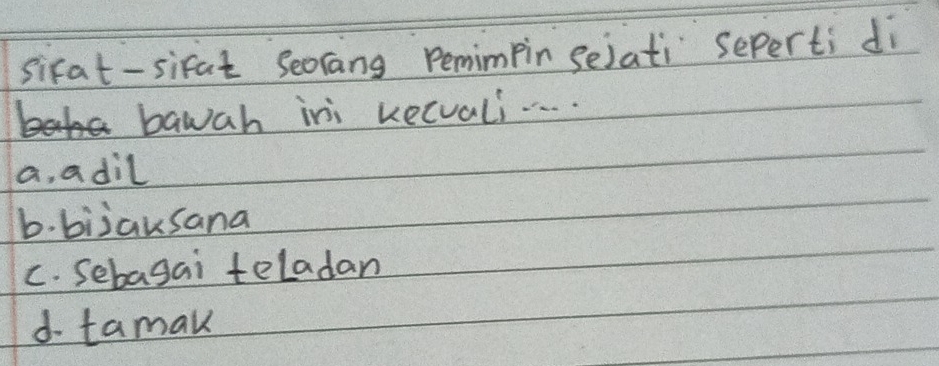 sifat-sifat seorang pemimpin sejati seperti di
baha bawah ini kecuali ....
a. adil
b. bijaksana
c. sebagai teladan
d. tamak